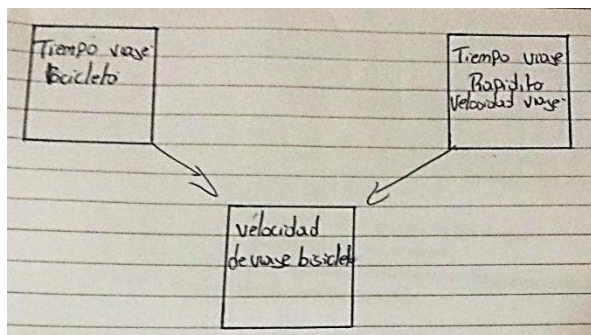 Tiempo viaje
Bicicleta
Tiempo viaje
Rapidito
Velocidad viaje
velocidad
de viaje bisicleta